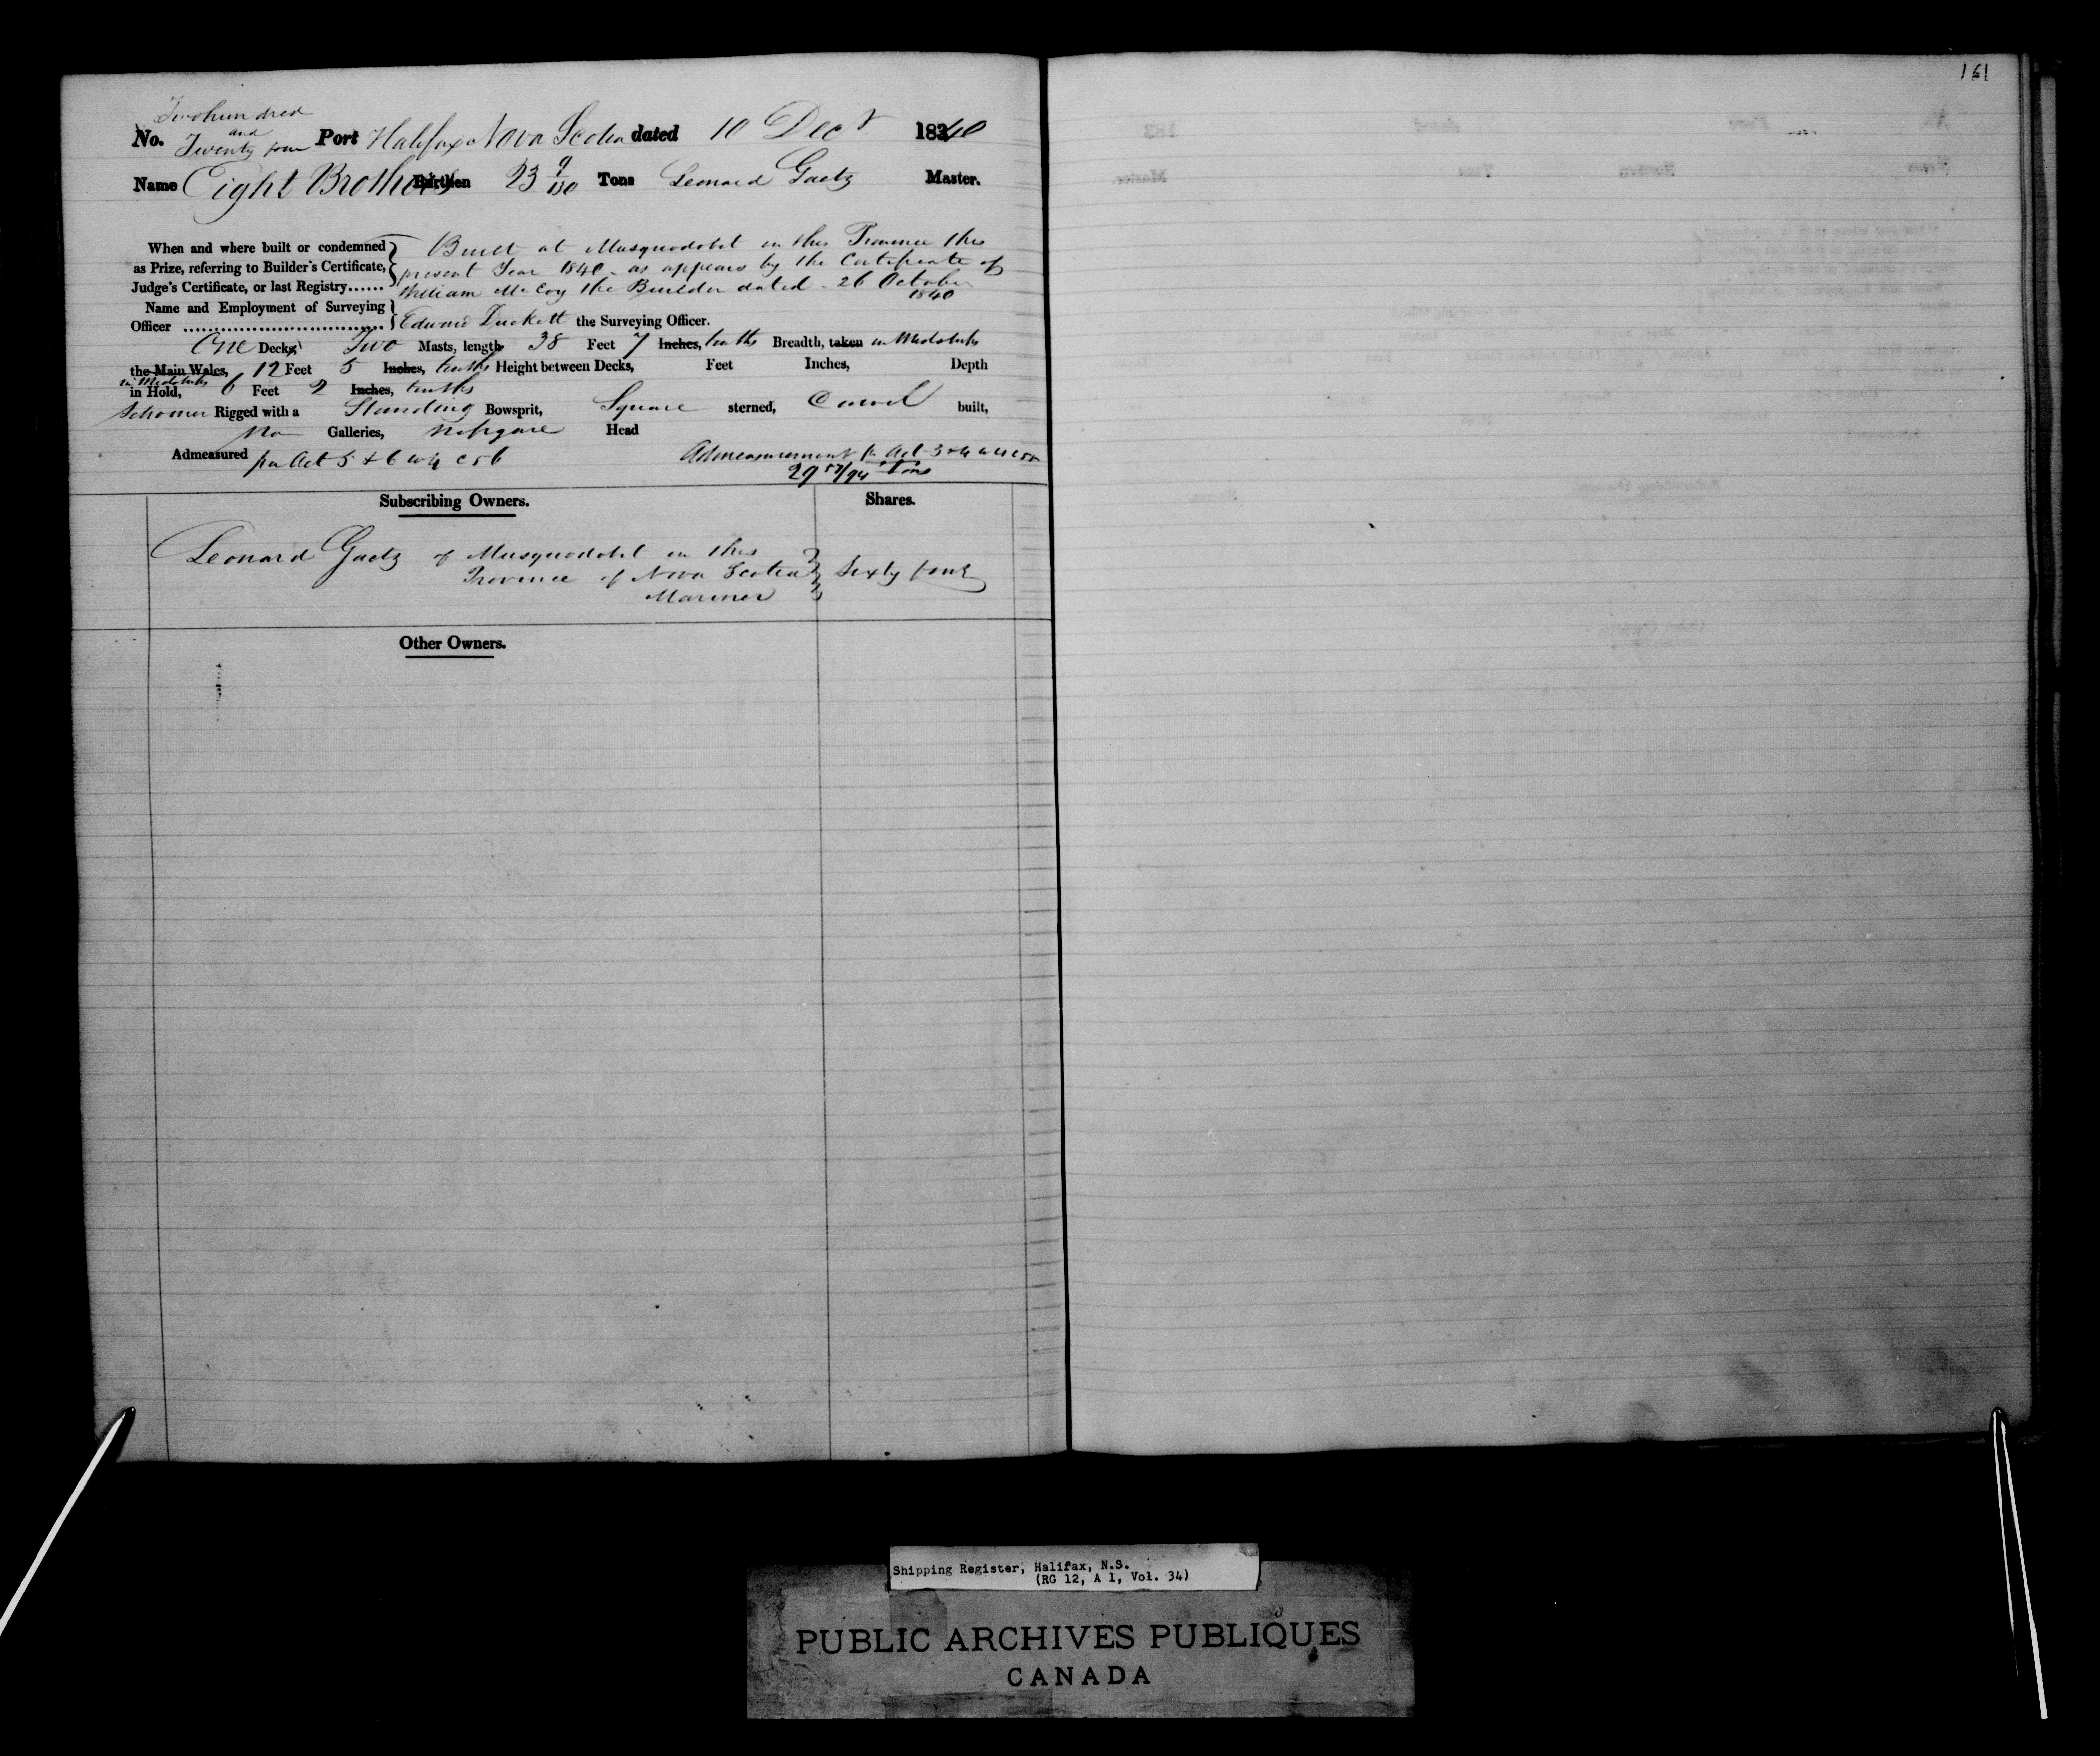 161
Two hundred
and
No. Twenty four Port Halifax Nova Scotia dated 10 Decr 1840
Name Eight Brothers Burthen 23 9/100 Tons Leonard Gaetz Master.
When and where built or condemned Built at Musquodobit in this Province this
as Prize, referring to Builder's Certificate, present Year 1840 as appears by the Certificate of
Judge's Certificate, or last Registry...... William McCoy the Builder dated 26 October
1840
Name and Employment of Surveying
Officer ................................ Edward Duckett the Surveying Officer.
One Decks, Two Masts, length 38 Feet 7 Inches, tenths Breadth, taken in Midships
the Main Wales, 12 Feet 5 Inches, tenths Height between Decks, Feet Inches, Depth
in Midships
in Hold, 6 Feet 2 Inches, tenths
Schooner Rigged with a Standing Bowsprit, Square sterned, Carvel built,
No Galleries, no figure Head
Admeasured per Act 5 & 6 W 4 c 56 Admeasurement pr Act 3 & 4 W 4 c
29 57/94 Tons
Subscribing Owners. Shares.
Leonard Gaetz of Musquodobit in this
Province of Nova Scotia Sixty four
Mariner
Other Owners.
Shipping Register, Halifax, N.S.
(RG 12, A 1, Vol. 34)
PUBLIC ARCHIVES PUBLIQUES
CANADA